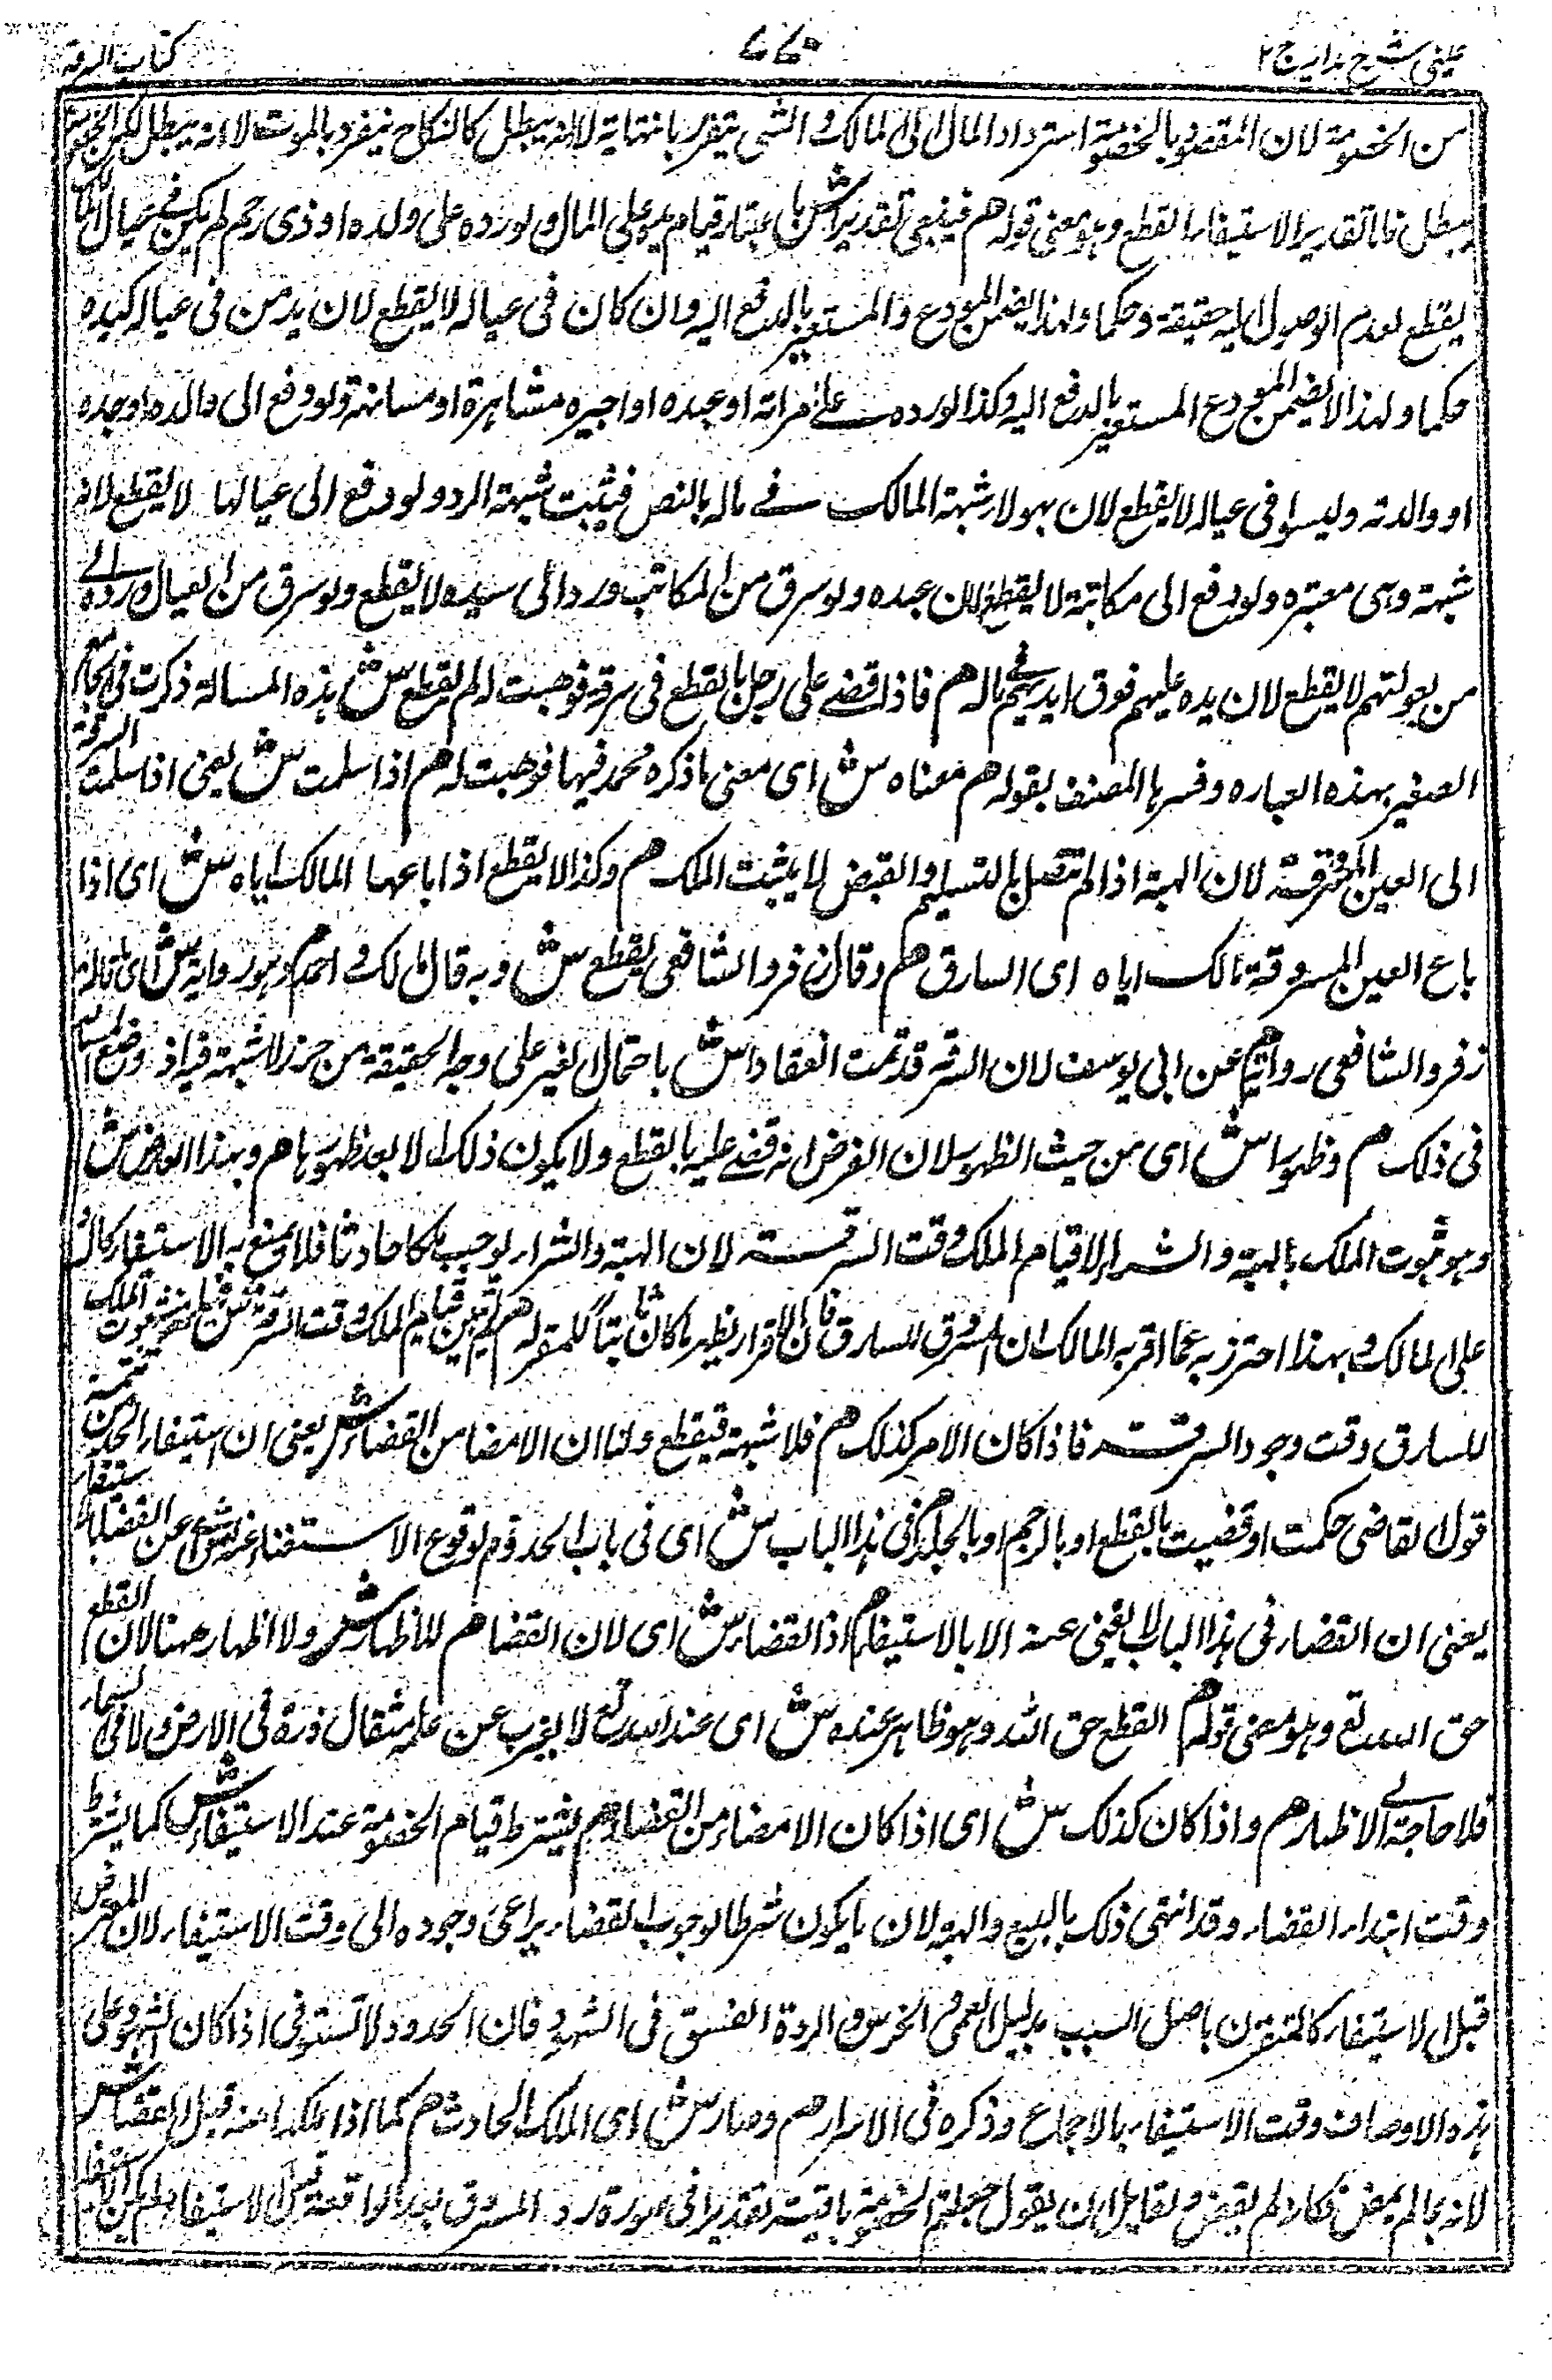 عینی شرح ہدایہ ج ۲
۷۷۰
کتاب السرقة
من الخصومة لان المقصود بالخصومة استرداد المال الى المالک والشی یتقرر بانتهایة لانه یبطل کالنکاح یتقرر بالموت لا انه یبطل لکن
یبطل فاما تقدیرا لاستیفاء القطع وہو معنی قوله هم فیبقی تقدیرا ش باعتبار قیام یده علی المال ولو رده علی ولده او ذی رحم لم یکن فی عیال
یقطع لعدم الوصول الیه حقیقة وحکما ولهذا یضمن المودع والمستعیر بالدفع الیه وان کان فی عیاله لا یقطع لان ید من فی عیاله کیده
حکما ولهذا لا یضمن المودع المستعیر بالدفع الیه وکذا لو رده علی امراته او عبده او اجیره مشاهرة او مسانهة ولو دفع الی والده او جده
او والدته ولیسوا فی عیاله لا یقطع لان لهولاء شبهة المالک فی ماله بالنص فیثبت شبهة الرد ولو دفع الی عیالها لا یقطع لانه
شبهة وهی معتبرة ولو دفع الی مکاتبة لا یقطع لان عبده ولو سرق من المکاتب ورد الی سیده لا یقطع ولو سرق من العیال ورده الی
من یعولهم لا یقطع لان یده علیهم فوق ایدیهم فی ماله هم فاذا قضی علی رجل بالقطع فی سرقة فوهبت له لم یقطع ش هذه المسالة ذکرت فی الجامع
الصغیر بهذه العبارة وفسرها المصنف بقوله هم معناه ش ای معنی ما ذکره محمد فیها فوهبت له هم اذا سلمت ش یعنی اذا سلمت السرقة
الی العین المسرقة لان الهبة اذا لم تتصل بالتسلیم والقبض لا یثبت الملک هم وکذا لا یقطع اذا باعها المالک ایاه ش ای اذا
باع العین المسروقة مالک ایاه ای السارق هم وقال زفر والشافعی یقطع ش وبه قال مالک و احمد هم وهو روایة ش ای ما قاله
زفر والشافعی روایة هم عن ابی یوسف لان السرقة قد تمت انعقادا ش باخذ مال الغیر علی وجه الحقیقة من حرز لا شبهة فیه اذ وضع المسالة
فی ذلک هم وظهورا ش ای من حیث الظهور لان الفرض انه قضی علیه بالقطع ولا یکون ذلک الا بعد ظهورها هم وبهذا العارض ش
وهو ثبوت الملک بالهبة والشراء لا قیام الملک وقت السرقة لان الهبة والشراء یوجب ملکا حادثا فلا یمنع به الاستیفاء کالرد
علی المالک و بهذا احترز به عما اقر به المالک ان المسروق للسارق فان الاقرار یظهر ما کان ثابتا للمقر له هم لم یتبین قیام الملک وقت السرقة ش
للسارق وقت وجود السرقة فاذا کان الامر کذلک هم فلا شبهة فیقطع ولنا ان الامضاء من القضاء ش یعنی ان استیفاء الحد من تتمة
قول القاضی حکمت او قضیت بالقطع او بالرجم او بالجلد هم فی هذا الباب ش ای فی باب الحدود هم لوقوع الاستغناء عنه ش ای عن القضاء بالاستیفاء
یعنی ان القضاء فی هذا الباب لا یغنی عنه الا بالاستیفاء هم اذ القضاء ش ای لان القضاء هم للاظهار ش ولا اظهار ههنا لان القطع
حق الله تع وهو معنی قوله هم القطع حق الله وهو ظاهر عنده ش ای عند الله تع لا یعزب عن علمه مثقال ذرة فی الارض ولا فی السماء
فلا حاجة الی الاظهار هم واذا کان کذلک ش ای اذا کان الامضاء من القضاء هم یشترط قیام الخصومة عند الاستیفاء ش کما یشترط
وقت ابتداء القضاء وقد انتهی ذلک بالبیع والهبة لان ما یکون شرطا لوجوب القضاء یراعی وجوده الی وقت الاستیفاء لان المعترض
قبل الاستیفاء کالمقترن باصل السبب بدلیل العمی و الخرس و الردة الفسق فی الشهود فان الحدود لا تستوفی اذا کان الشهود علی
هذه الاوصاف وقت الاستیفاء بالاجماع وذکره فی الاسرار هم وصار ش ای الملک الحادث هم کما اذا ملکها منه قبل القضاء ش
لانه ما لم یمض فکانه لم یقض ولقایل ان یقول جعلتم الخصومة باقیة تقدیرا فی صورة رد المسروق بعد الواقعة قبل الاستیفاء